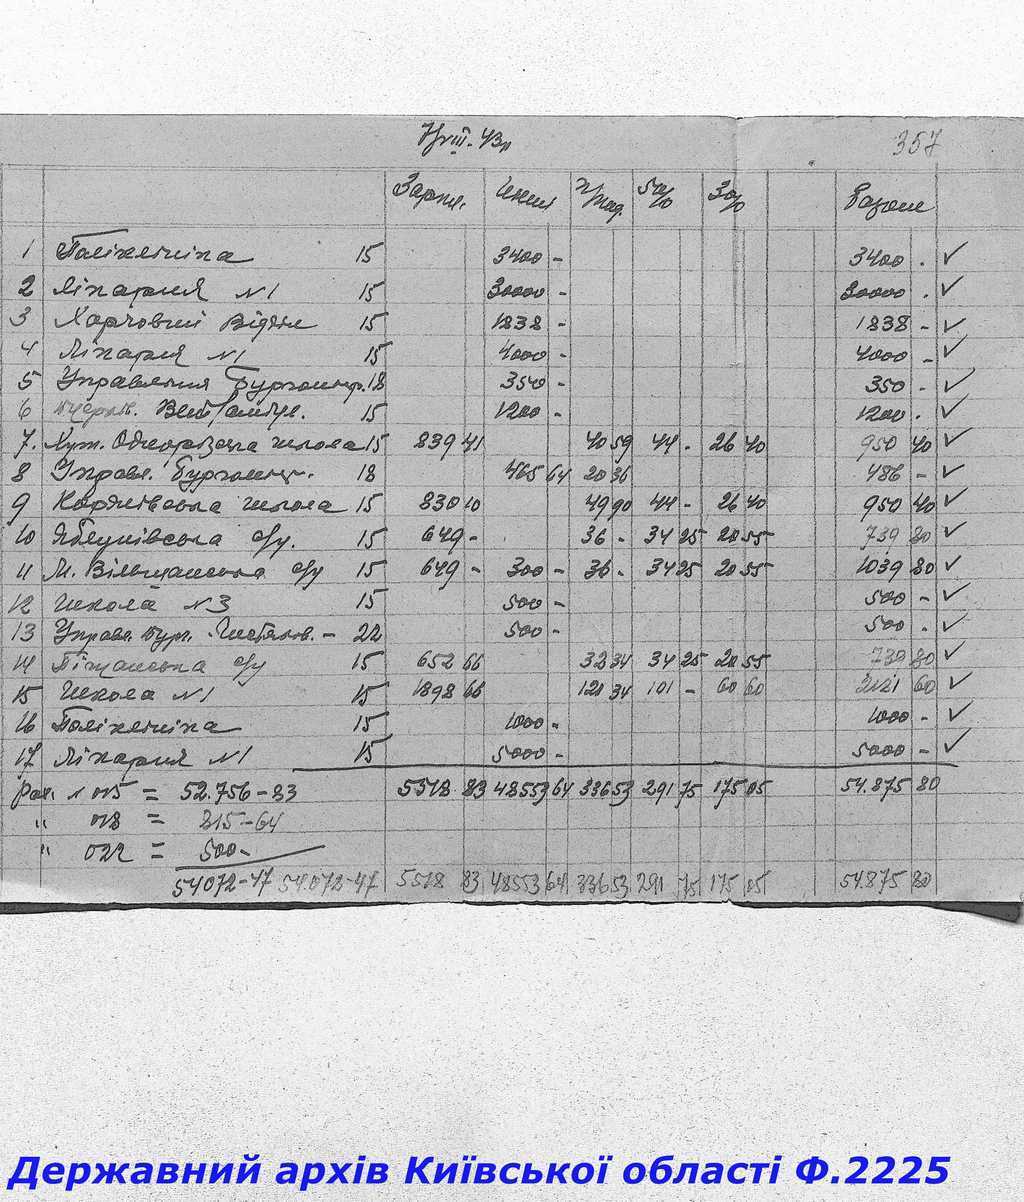 VIII. 43 357
Зарпл. Инши 5% 3% Разом
1 Поліклініка 15 3400 - 3400 . ✓
2 Лікарня №1 15 30000 - 30000 . ✓
3 Харчовий Відділ 15 1838 - 1838 - ✓
4 Лікарня №1 15 4000 - 4000 - ✓
5 Управління Бургомистр. 18 350 - 350 - ✓
6 15 1200 - 1200 . ✓
7. школа 15 839 41 40 59 44 - 26 40 950 40 ✓
8 Управл. Бургомист. 18 465 64 20 36 486 - ✓
9 школа 15 830 10 49 90 44 - 26 40 950 40 ✓
10 Яблунівська с/у. 15 649 - 36 - 34 25 20 55 739 80 ✓
11 М. Вільшанська с/у 15 649 - 300 - 36 - 34 25 20 55 1039 80 ✓
12 Школа №3 15 500 - 500 - ✓
13 Управл. Бур. - 22 500 - 500 . ✓
14 Піщанська с/у 15 652 66 32 34 34 25 20 55 739 80 ✓
15 Школа №1 15 1898 66 121 34 101 - 60 60 2181 60 ✓
16 Поліклініка 15 1000 - 1000 - ✓
17 Лікарня №1 15 5000 - 5000 - ✓
Рах. № 015 = 52.756-83 5518 83 48553 64 336 53 291 75 175 05 54.875 80
" 018 = 815-64
" 022 = 500-
54072-47 54.072-47 5518 83 48553 64 336 53 291 75 175 05 54.875 80
Державний архів Київської області Ф.2225